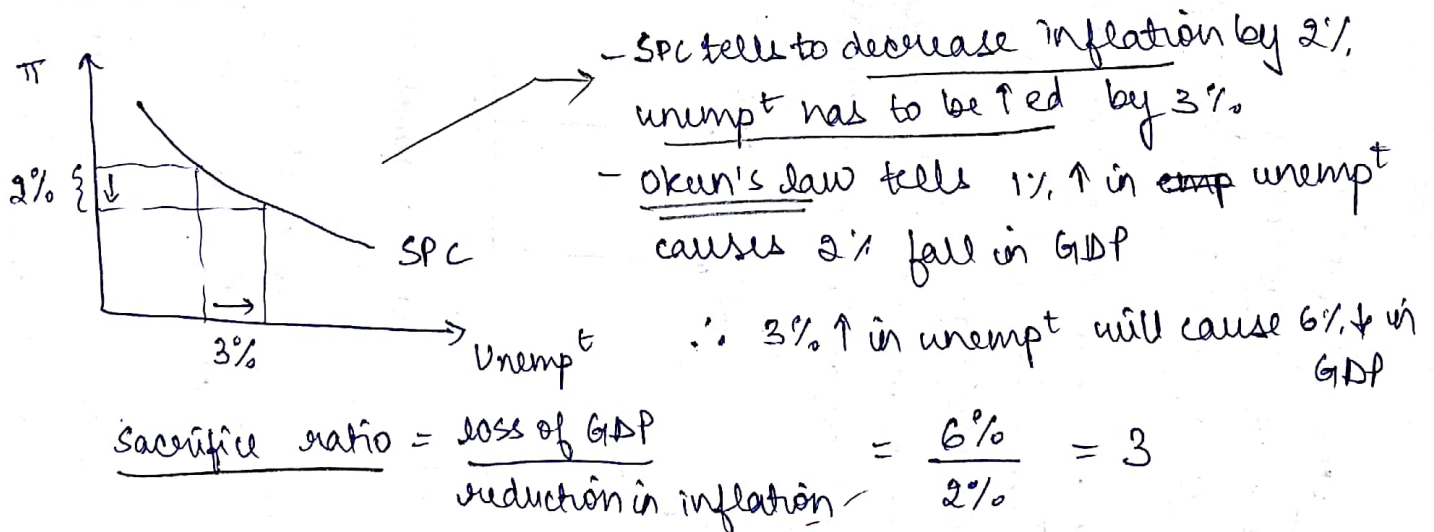 π
2% {↓
SPC
→
3%
Unempᵗ
- SPC tells to decrease inflation by 2%
unempᵗ has to be ↑ed by 3%
- Okun's law tells 1% ↑ in emp unempᵗ
causes 2% fall in GDP
∴ 3% ↑ in unempᵗ will cause 6% ↓ in
GDP
Sacrifice ratio = loss of GDP / reduction in inflation = 6% / 2% = 3